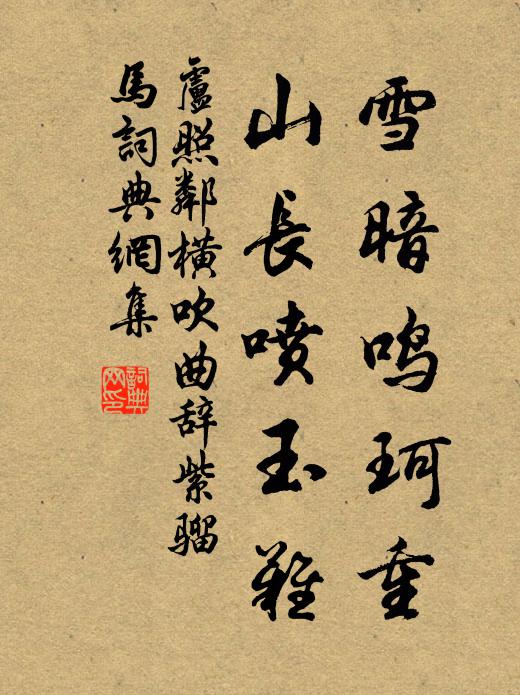 雪暗鸣珂重
山長喷玉難
盧照鄰横吹曲辞紫骝
馬詞典網集
詞典
网印